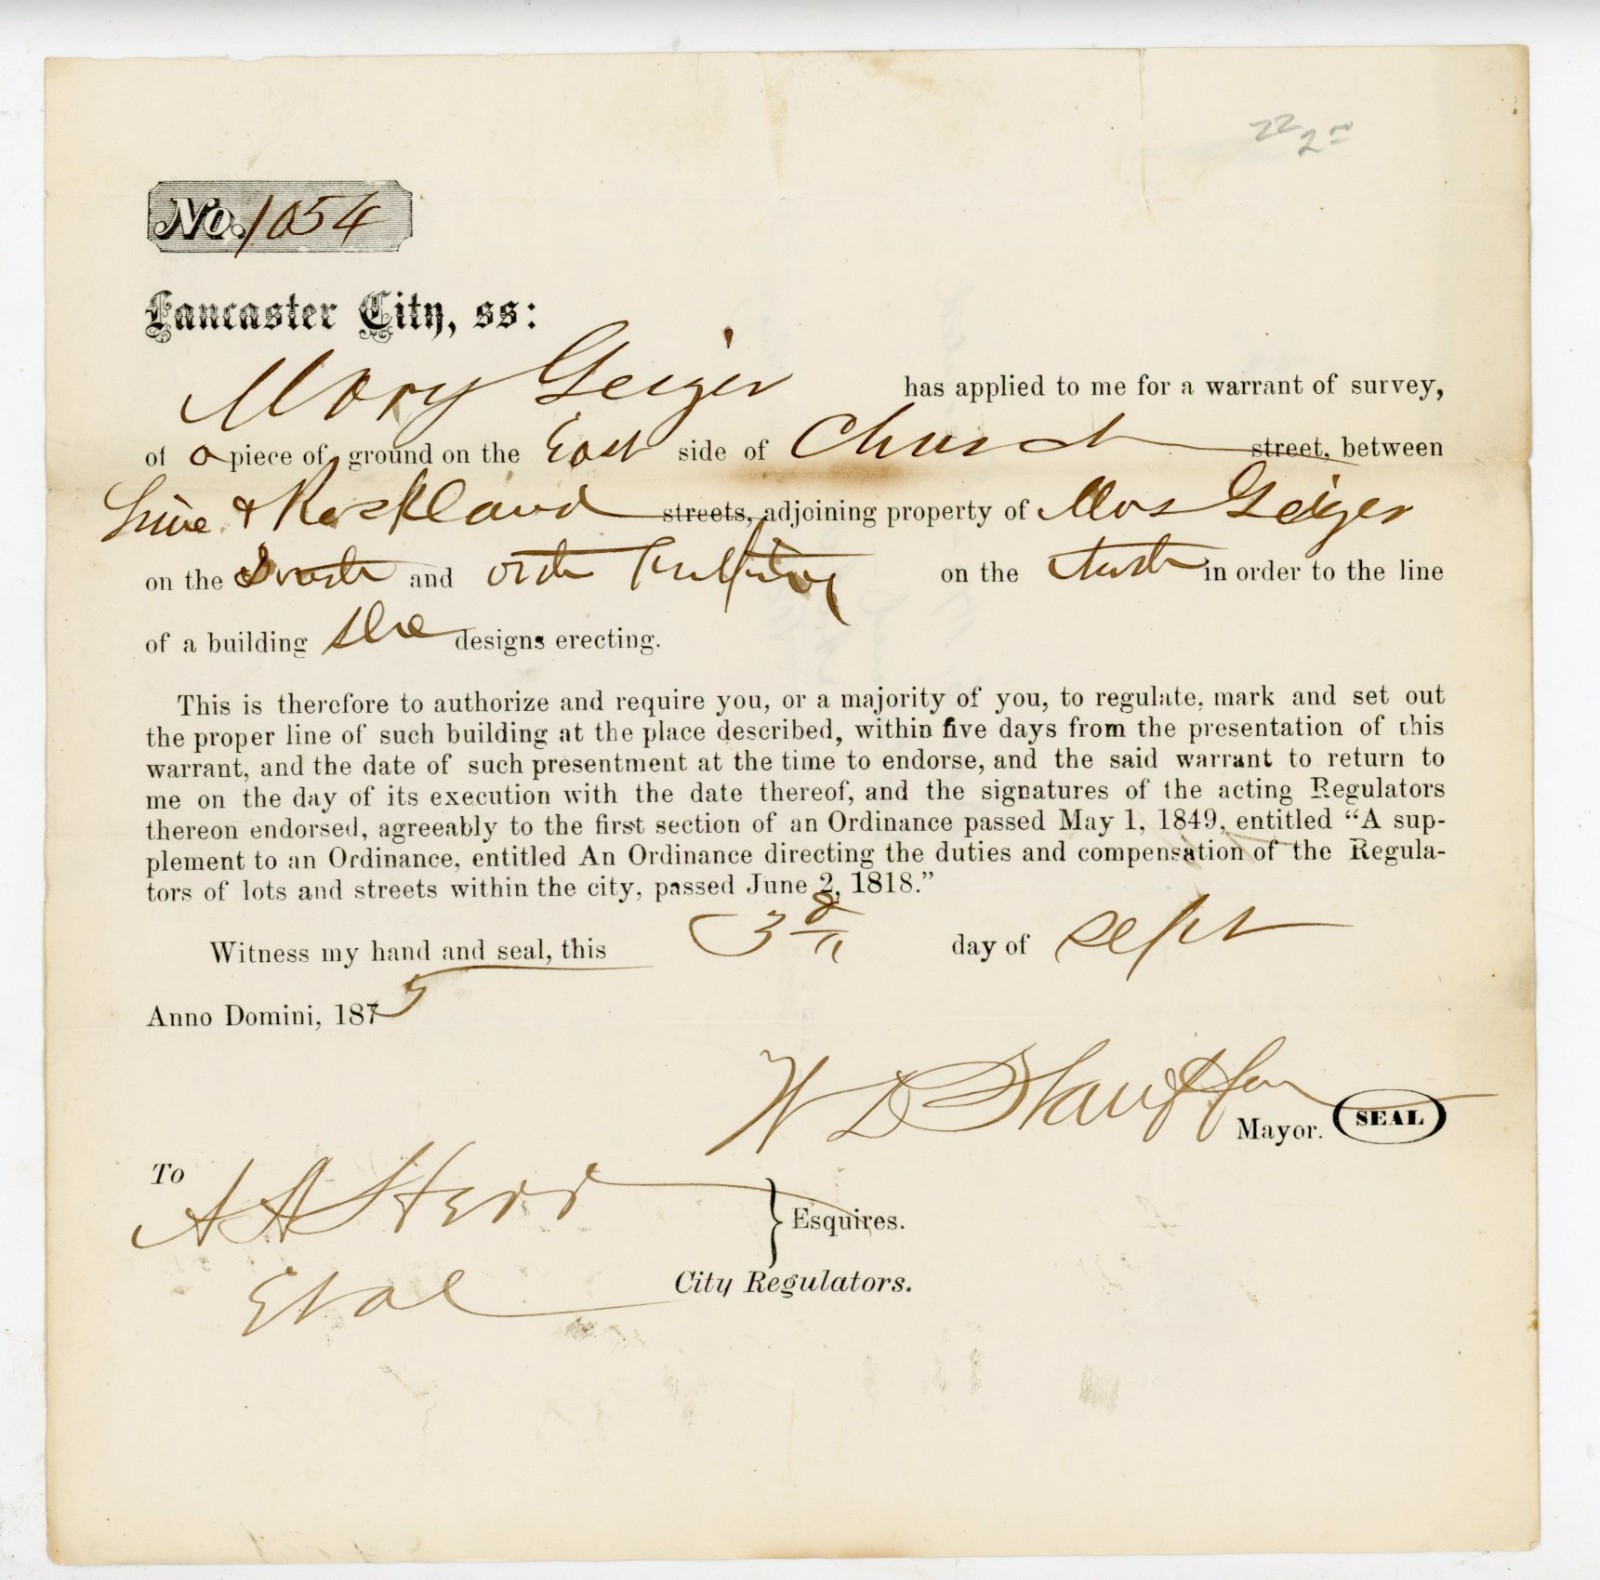 22 2
No. 1054
Lancaster City, ss:
Mary Geiger has applied to me for a warrant of survey,
of a piece of ground on the East side of Church street, between
Lime & Rockland streets, adjoining property of Mrs Geiger
on the South and on the in order to the line
of a building she designs erecting.
This is therefore to authorize and require you, or a majority of you, to regulate, mark and set out
the proper line of such building at the place described, within five days from the presentation of this
warrant, and the date of such presentment at the time to endorse, and the said warrant to return to
me on the day of its execution with the date thereof, and the signatures of the acting Regulators
thereon endorsed, agreeably to the first section of an Ordinance passed May 1, 1849, entitled “A sup-
plement to an Ordinance, entitled An Ordinance directing the duties and compensation of the Regula-
tors of lots and streets within the city, passed June 2, 1818.”
Witness my hand and seal, this 3d day of Sept
Anno Domini, 1875
W D Stauffer
Mayor. SEAL
To
A A Herr
Esquires.
Et al
City Regulators.